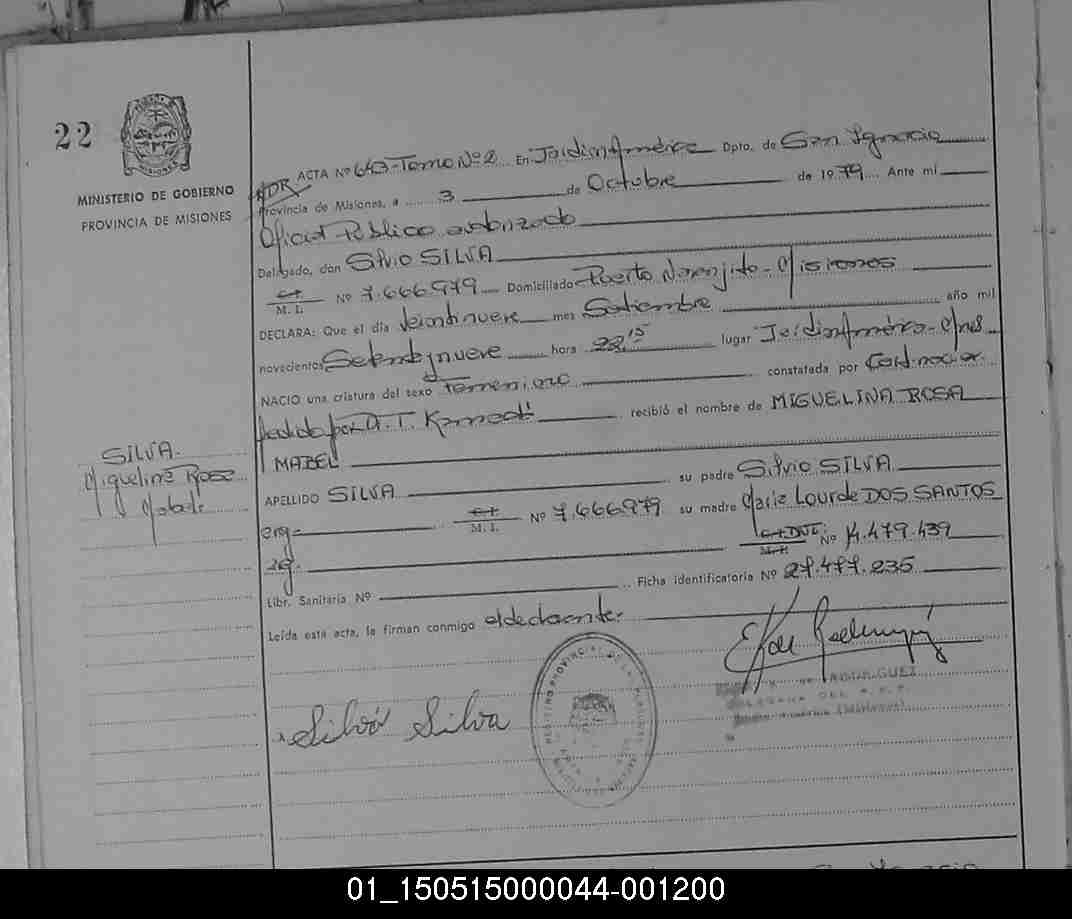 22
MINISTERIO DE GOBIERNO
PROVINCIA DE MISIONES
ACTA Nº 643-Tomo Nº2 En Jardin América Dpto. de San Ignacio
Provincia de Misiones, a 3 de Octubre de 1979 Ante mí
Oficial Público autorizado
Delegado, don Silvio SILVA
M. I. Nº 7.666.979 Domiciliado Puerto Naranjito-Misiones
DECLARA: Que el día Veintinueve mes Setiembre año mil
novecientos Setentaynueve hora 22,15 lugar Jardin América-Mnes
NACIO una criatura del sexo femenino constatada por Cert. nac. ex-
pedido por A. T. recibió el nombre de MIGUELINA ROSA
MABEL
SILVA.
Miguelina Rosa
Mabel
APELLIDO SILVA su padre Silvio SILVA
arg- M. I. Nº 7.666.979 su madre Maria Lourde DOS SANTOS
ag. DNI: Nº 14.479.439
Libr. Sanitaria Nº Ficha identificatoria Nº 27.477.235
Leída esta acta, la firman conmigo el declarante.
Silvio Silva
RODRIGUEZ
(Misiones)
01_150515000044-001200